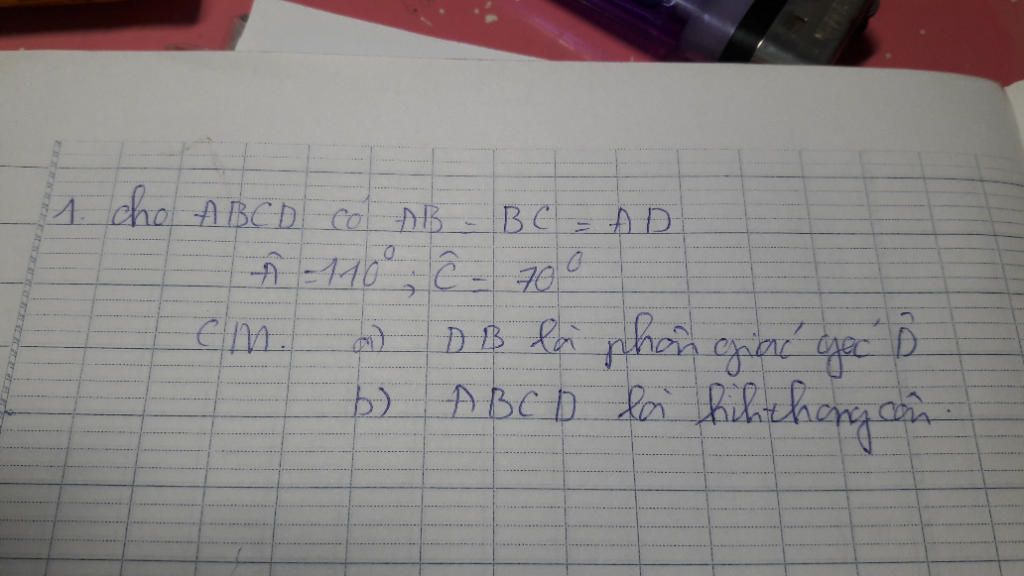 1. cho ABCD có AB = BC = AD
Â = 110⁰ ; Ĉ = 70⁰
CM. a) DB là phân giác góc D̂
b) ABCD là hình thang cân.